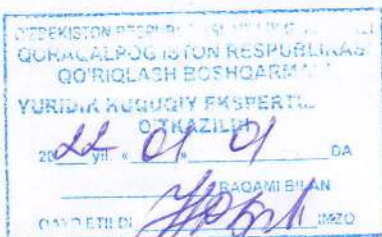 O'ZBEKISTON RESPUBLIKASI
QORAQALPOG'ISTON RESPUBLIKASI
QO'RIQLASH BOSHQARMA
YURIDIK HUQUQIY EKSPERTIZA
O'TKAZILDI
2022 yil. « 01 » 01 DA
RAQAMI BILAN
QAYD ETILDI IMZO